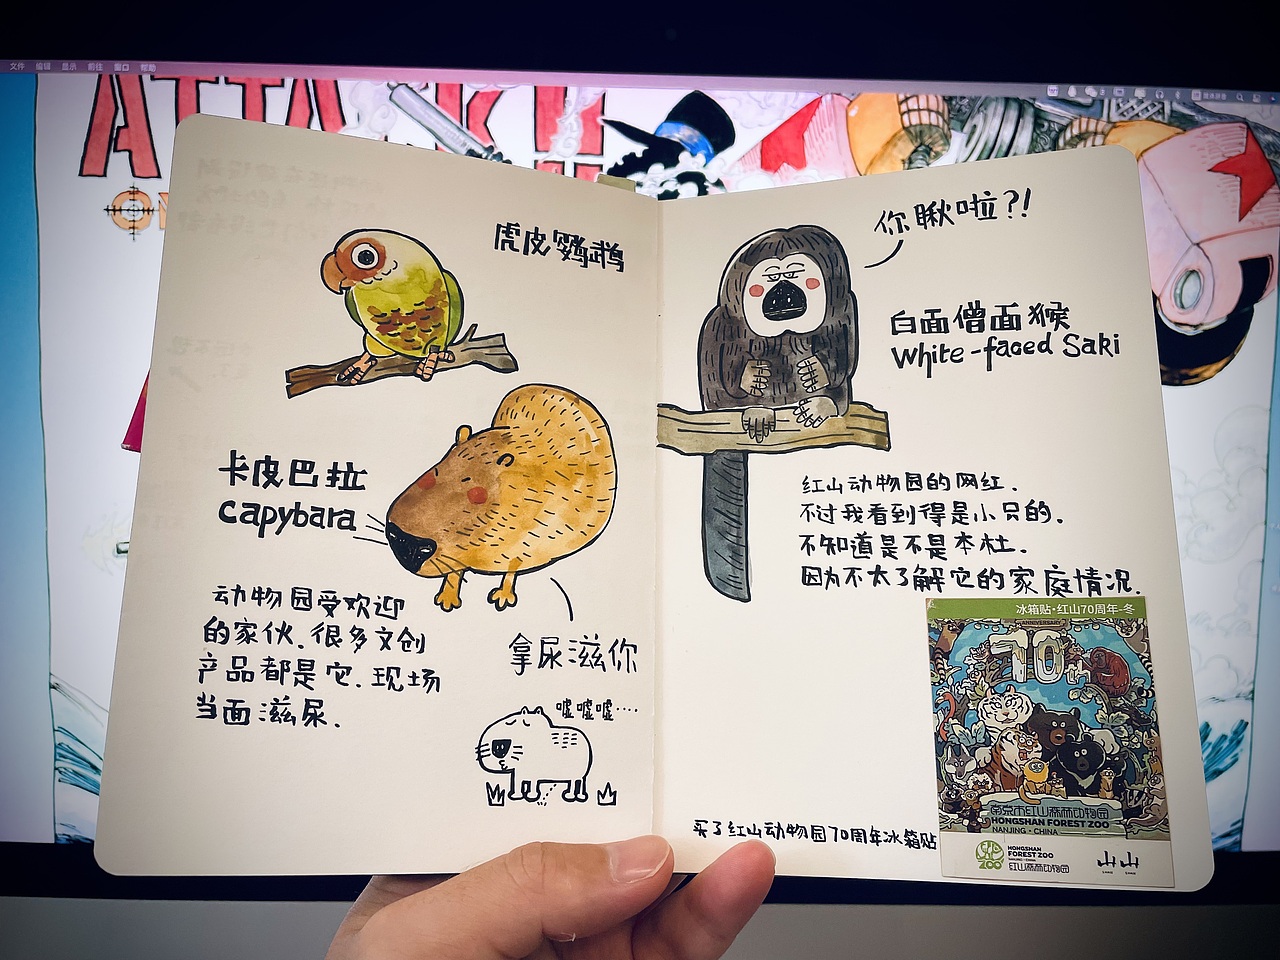 文件 编辑 显示 前往 窗口 帮助
虎皮鹦鹉
卡皮巴拉
capybara
动物园受欢迎
的家伙.很多文创
产品都是它.现场
当面滋尿.
拿尿滋你
嘘嘘嘘····
你瞅啦?!
白面僧面猴
White-faced Saki
红山动物园的网红.
不过我看到得是小只的.
不知道是不是本杜.
因为不太了解它的家庭情况.
买了红山动物园70周年冰箱贴
冰箱贴·红山70周年-冬
ANNIVERSARY
70th
南京市红山森林动物园
HONGSHAN FOREST ZOO
NANJING·CHINA
HONGSHAN
FOREST ZOO
NANJING·CHINA
红山森林动物园
ZOO